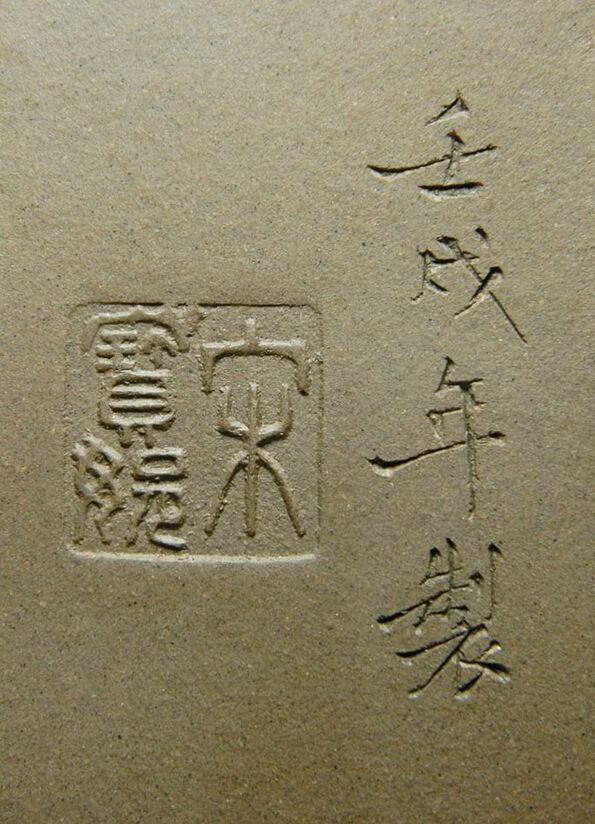 壬戌年製
宋
寶